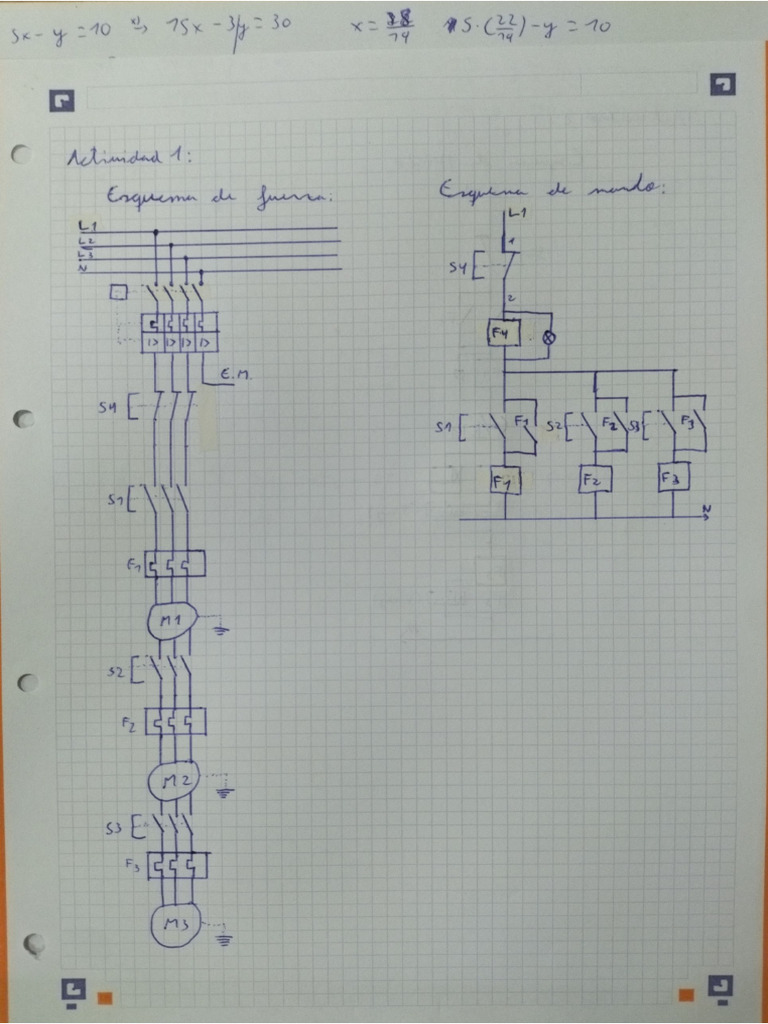 5x - y = 10 => 15x - 3y = 30 x = 38/14 5·(22/14) - y = 10
Actividad 1:
Esquema de fuerza:
Esquema de mando:
L1
L2
L3
N
L1
1
S4
2
F4
I> I> I> I>
E.M.
S4
S1
F1
S2
F2
S3
F3
F1
F2
F3
N
S1
F1
M1
S2
F2
M2
S3
F3
M3